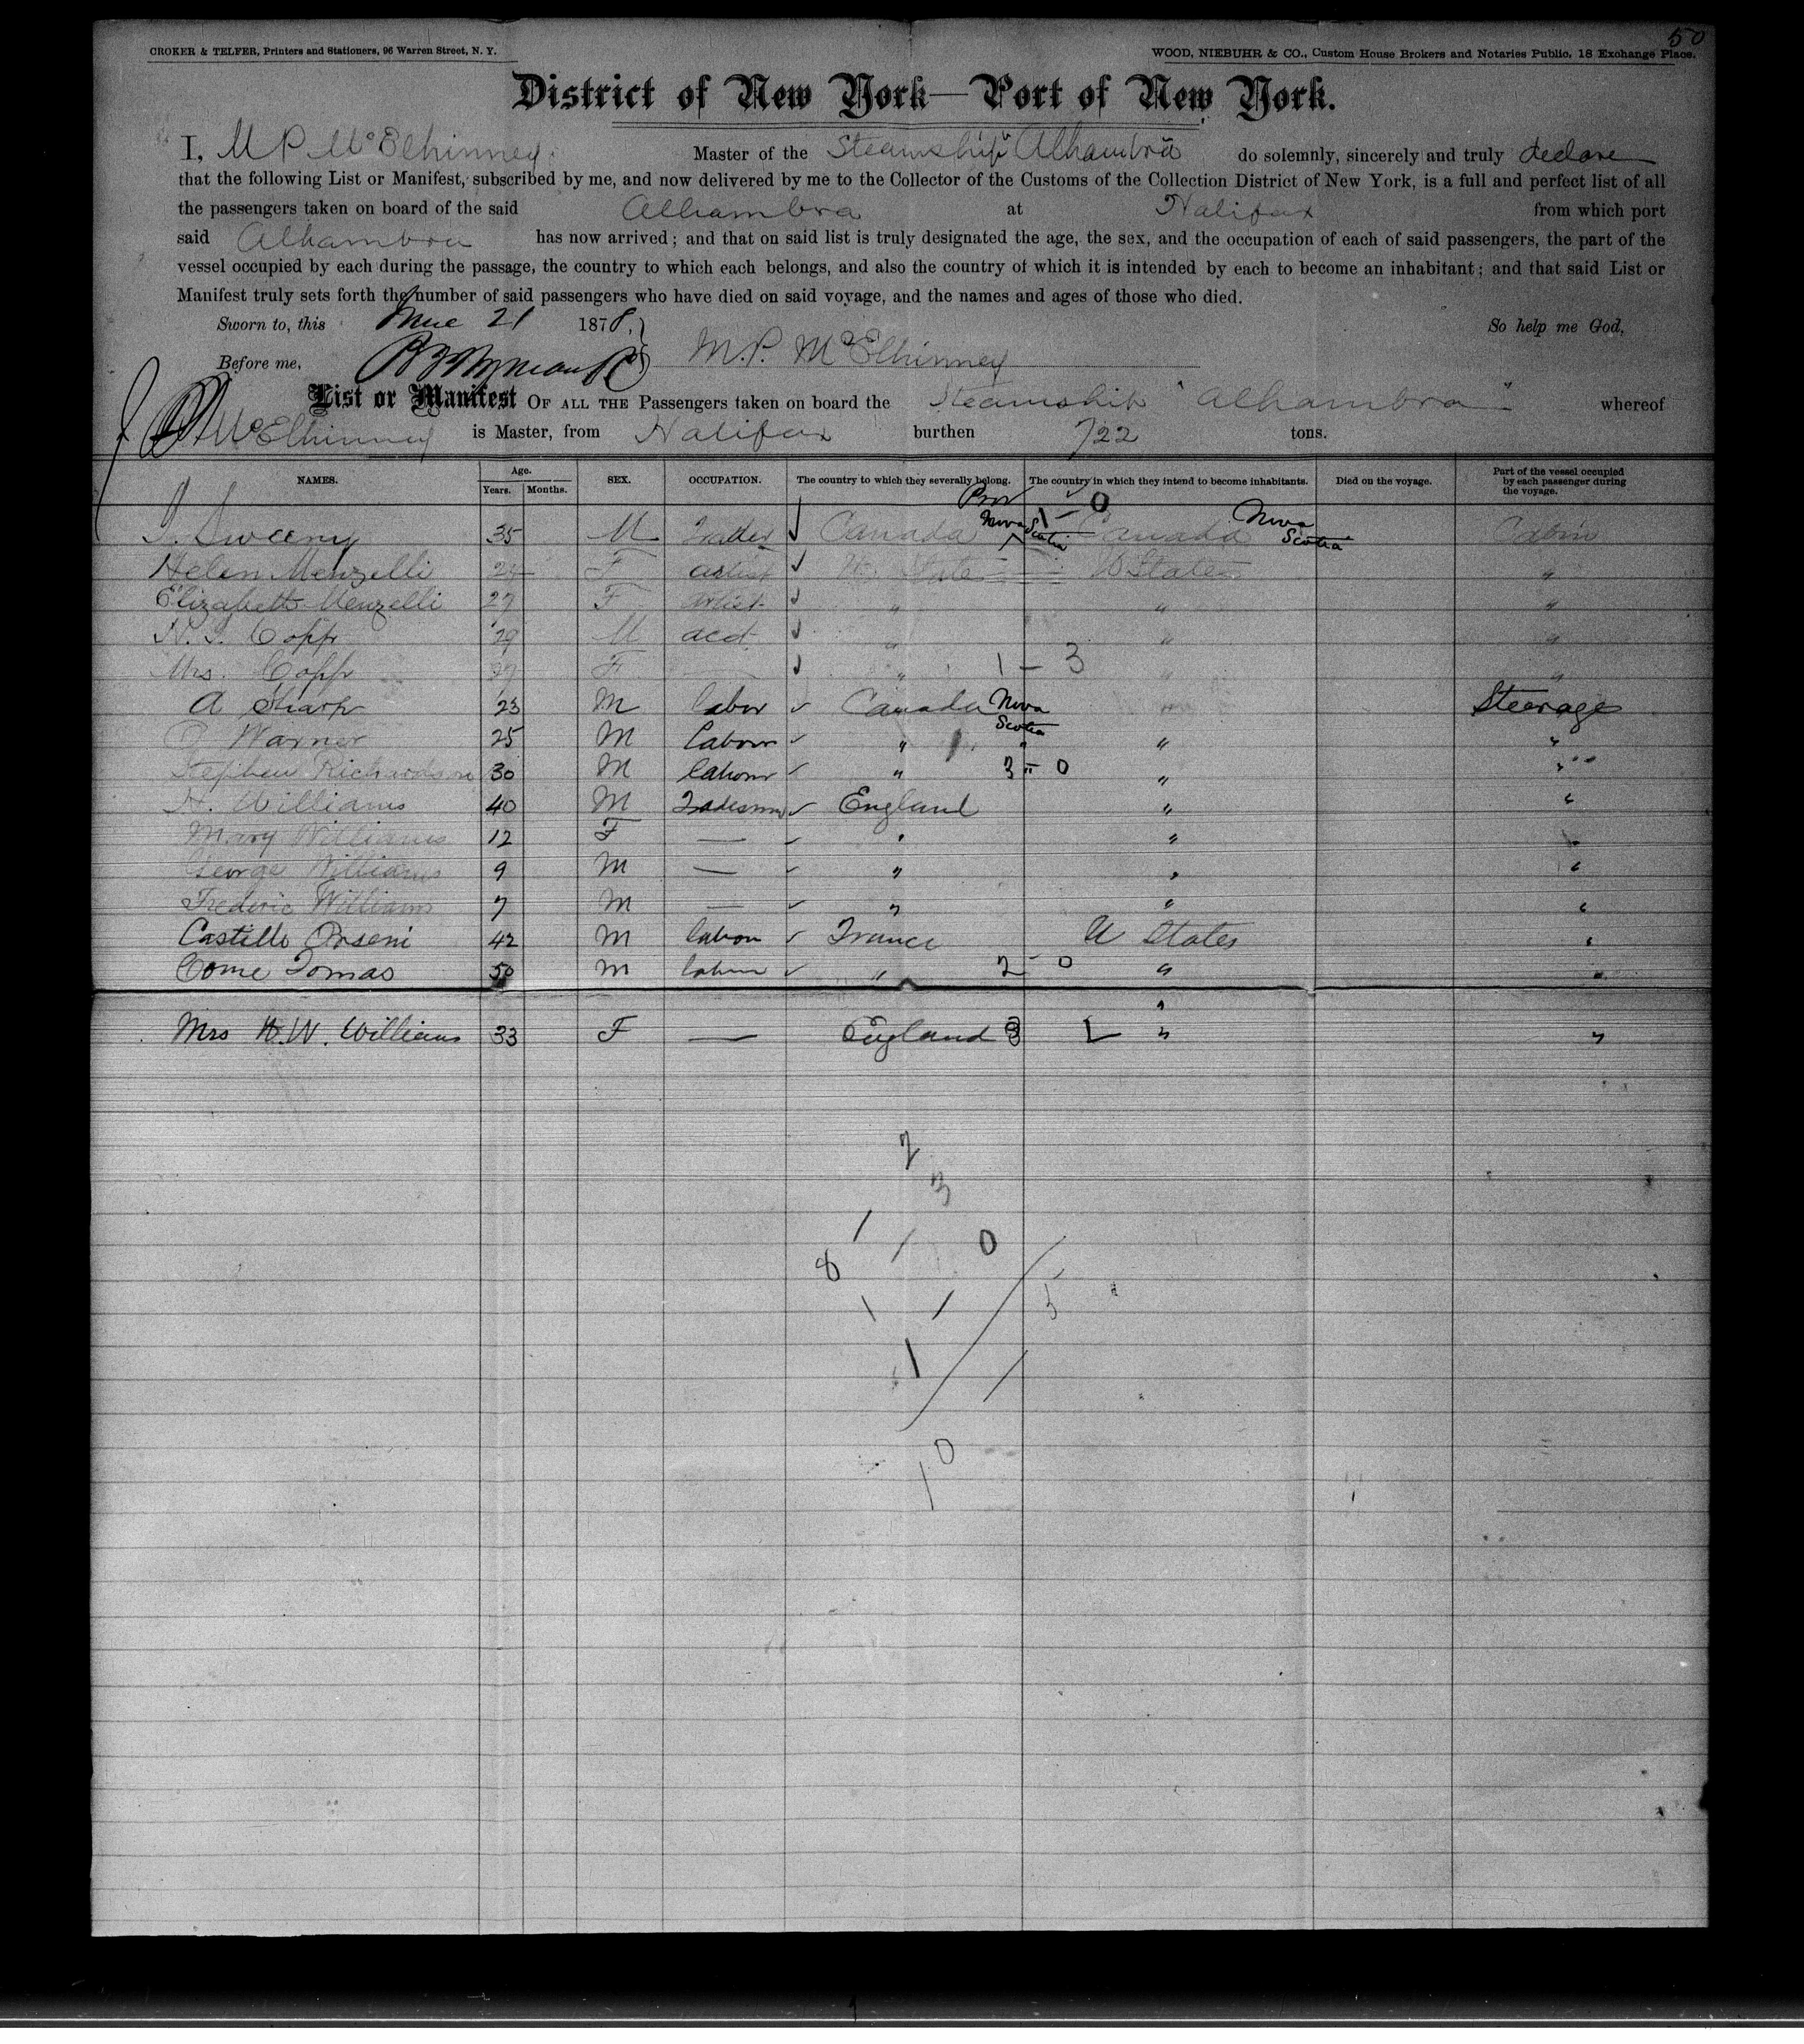 50
CROKER & TELFER, Printers and Stationers, 96 Warren Street, N. Y.
WOOD, NIEBUHR & CO., Custom House Brokers and Notaries Public, 18 Exchange Place.
District of New York—Port of New York.
I, M P McElhinney Master of the Steamship "Alhambra" do solemnly, sincerely and truly declare
that the following List or Manifest, subscribed by me, and now delivered by me to the Collector of the Customs of the Collection District of New York, is a full and perfect list of all
the passengers taken on board of the said Alhambra at Halifax from which port
said Alhambra has now arrived; and that on said list is truly designated the age, the sex, and the occupation of each of said passengers, the part of the
vessel occupied by each during the passage, the country to which each belongs, and also the country of which it is intended by each to become an inhabitant; and that said List or
Manifest truly sets forth the number of said passengers who have died on said voyage, and the names and ages of those who died.
Sworn to, this 21 1878, So help me God,
Before me, M. P. McElhinney
List or Manifest OF ALL THE Passengers taken on board the Steamship "Alhambra" whereof
McElhinney is Master, from Halifax burthen 722 tons.
NAMES. Age. Years. Months. SEX. OCCUPATION. The country to which they severally belong. The country in which they intend to become inhabitants. Died on the voyage. Part of the vessel occupied by each passenger during the voyage.
Prov 1 – 0
Sweeny 35 M Trader Canada Nova Scotia Canada Nova Scotia Cabin
Helen Menzelli F artist U. States U States "
Elizabeth Menzelli 27 F Artist " " "
Copp 29 M acct " " "
Mrs. Copp 27 F — " 1 – 3 " "
A Sharp 23 M labor Canada Nova Scotia " Steerage
Warner 25 M labour " " " "
Stephen Richardson 30 M labour " 3 – 0 " "
H. Williams 40 M Tradesman England " "
Mary Williams 12 F — " " "
George Williams 9 M — " " "
Frederic Williams 7 M — " " "
Castello Orseni 42 M labour France U States "
Come Tomas 50 M labour " 2 – 0 " "
Mrs H. W. Williams 33 F — England " "
2
3
1 / 0
8
1 1 5
1 /
0
1